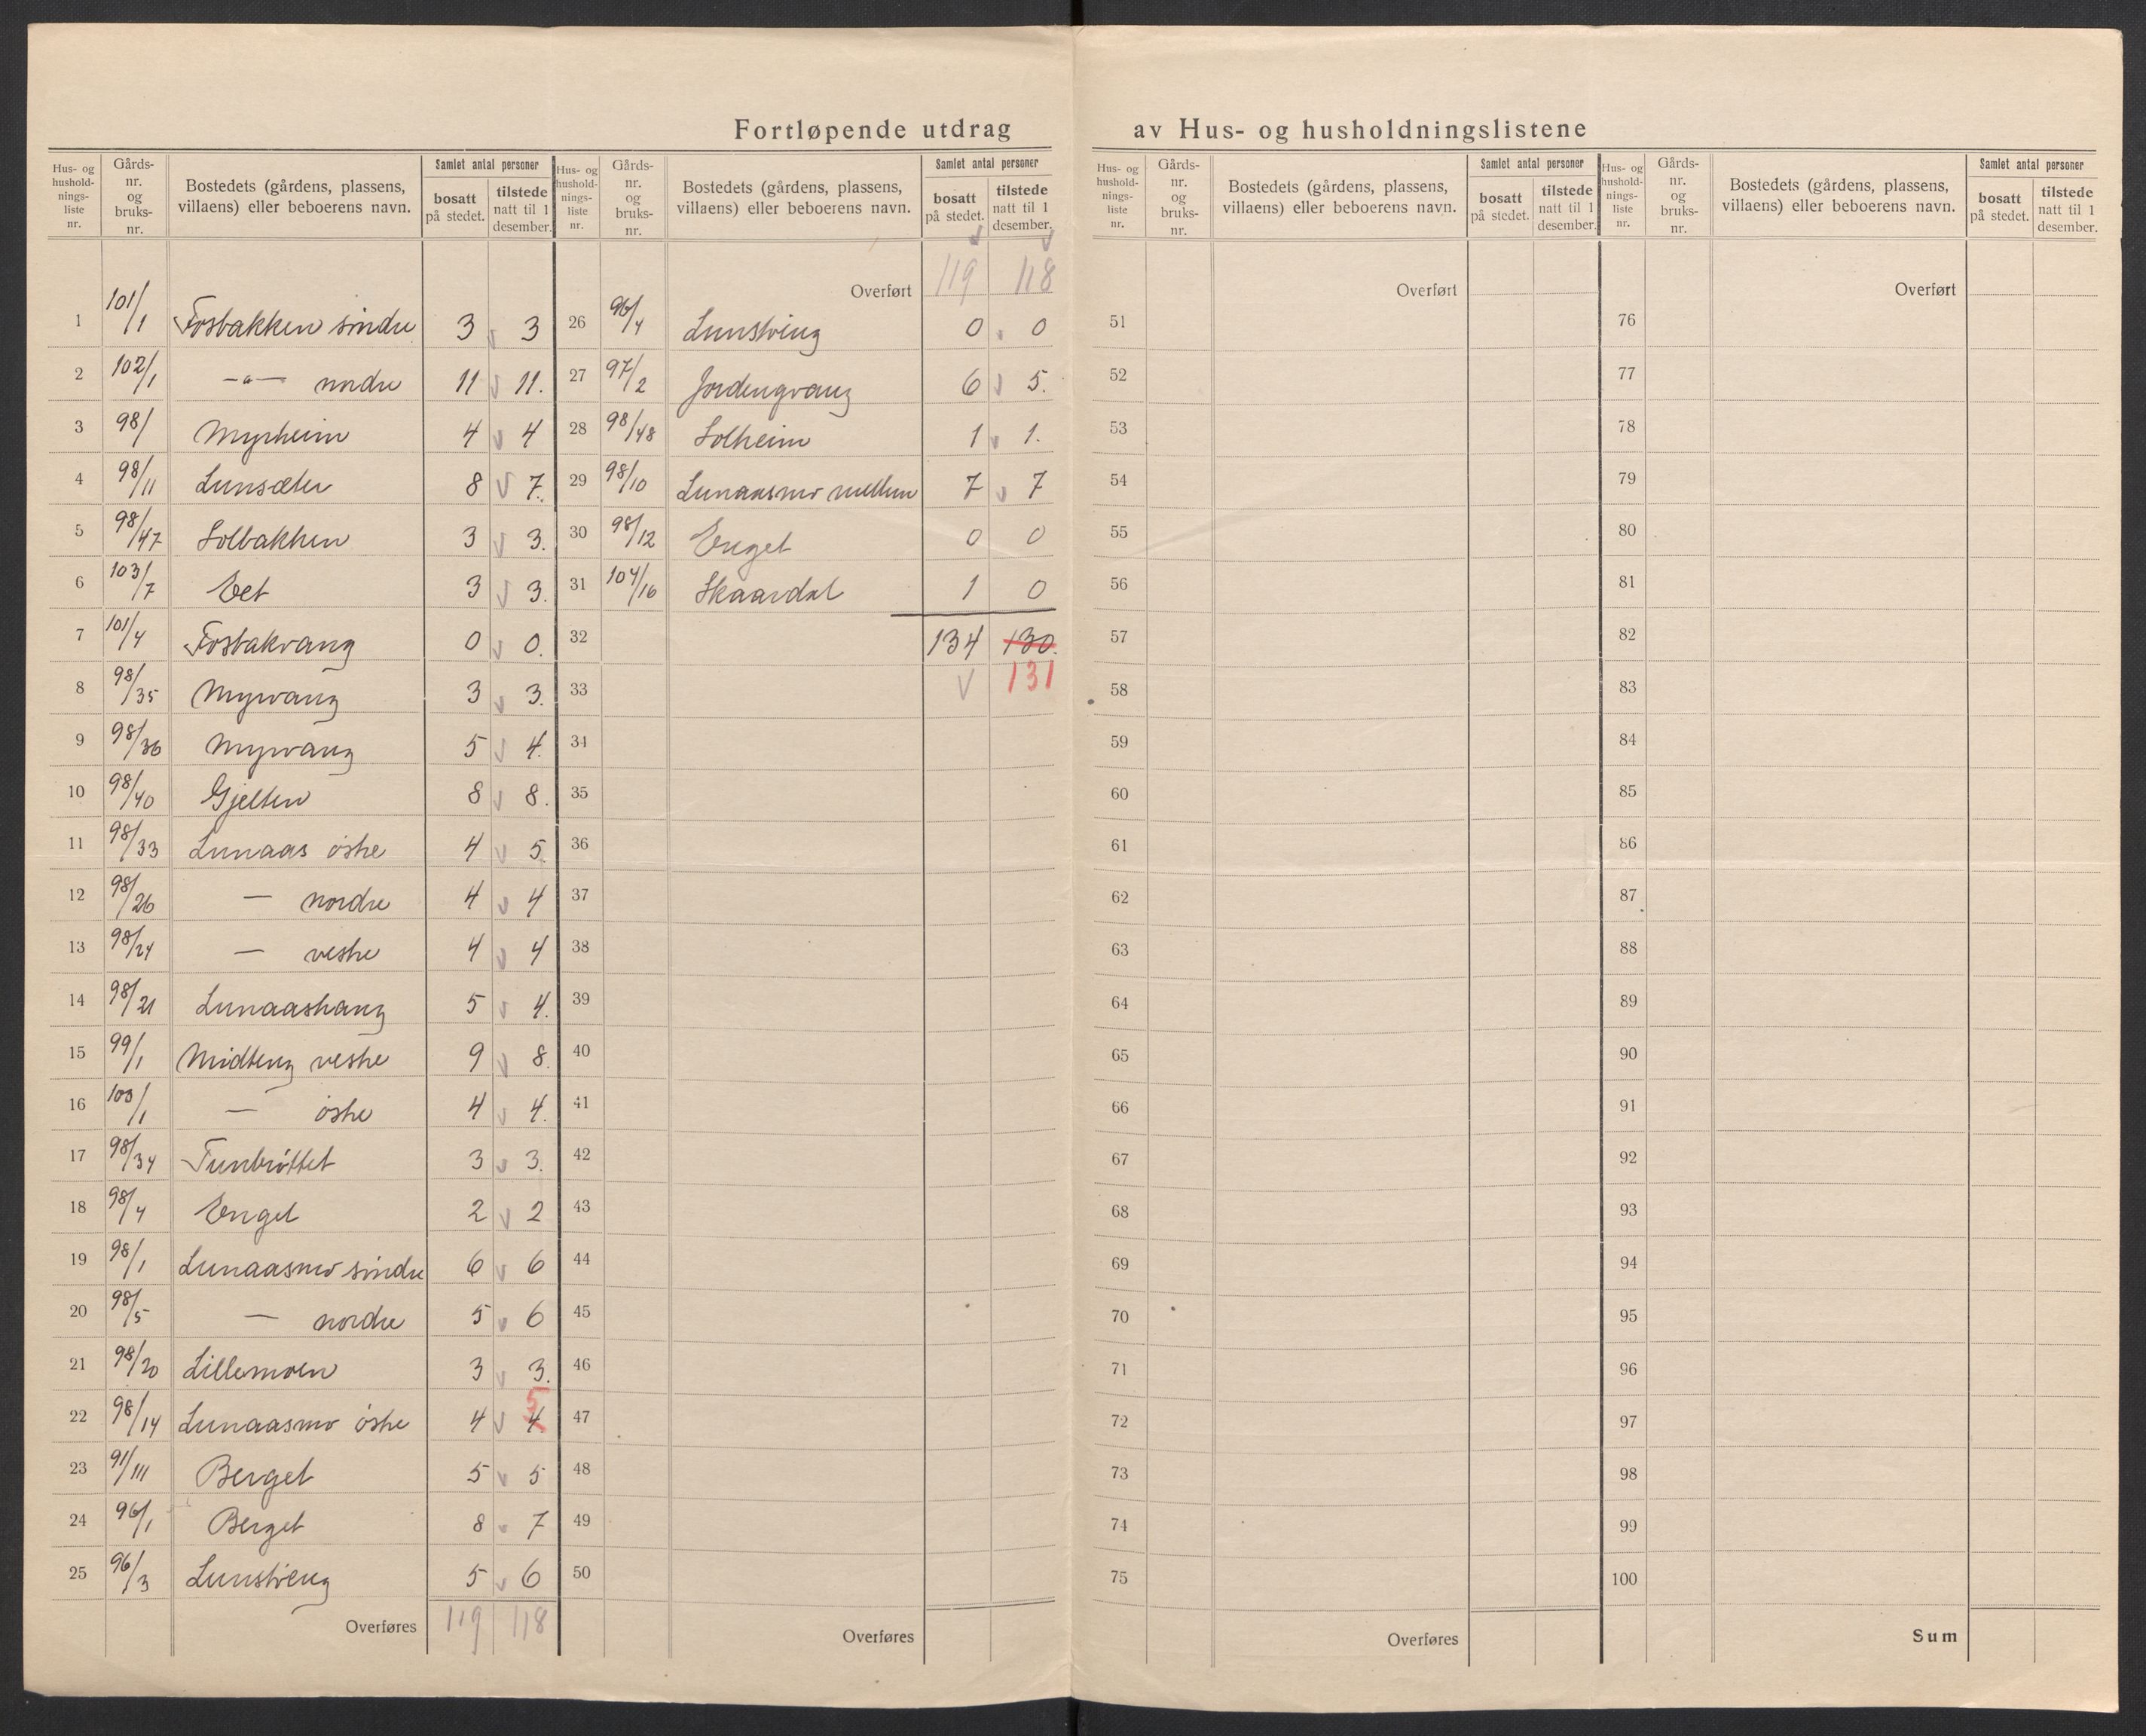 Fortløpende utdrag av Hus- og husholdningslistene
Hus- og hushold-nings-liste nr. Gårds-nr. og bruks-nr. Bostedets (gårdens, plassens, villaens) eller beboerens navn. Samlet antal personer bosatt på stedet. tilstede natt til 1 desember.
1 101/1 Fosbakken söndre 3 v 3
2 102/1 —"— nordre 11 v 11.
3 98/ Myrheim 4 v 4
4 98/11 Lunsæter 8 v 7.
5 98/47 Solbakken 3 v 3.
6 103/7 Eet 3 v 3.
7 101/4 Fosbakvang 0 v 0.
8 98/35 Myrvang 3 v 3.
9 98/36 Myrvang 5 v 4.
10 98/40 Gjelten 8 v 8.
11 98/33 Lunaas östre 4 v 5.
12 98/26 — nordre 4 v 4
13 98/24 — vestre 4 v 4
14 98/21 Lunaashaug 5 v 4.
15 99/1 Midteng vestre 9 v 8.
16 100/1 — östre 4 v 4.
17 98/34 Tunbröttet 3 v 3.
18 98/4 Enget 2 v 2
19 98/1 Lunaasmo söndre 6 v 6
20 98/5 — nordre 5 v 6
21 98/20 Lillemoen 3 v 3.
22 98/14 Lunaasmo östre 4 v 4 5
23 91/111 Berget 5 v 5
24 96/1 Berget 8 v 7
25 96/3 Lunstreng 5 v 6
Overføres 119 118
Hus- og hushold-nings-liste nr. Gårds-nr. og bruks-nr. Bostedets (gårdens, plassens, villaens) eller beboerens navn. Samlet antal personer bosatt på stedet. tilstede natt til 1 desember.
v v
Overført 119 118
26 96/4 Lunstreng 0 0
27 97/2 Jordengvang 6 v 5.
28 98/48 Solheim 1 v 1.
29 98/10 Lunaasmo mellem 7 v 7
30 98/12 Enget 0 0
31 104/16 Skaardal 1 0
32 134 130.
33 v 131
34
35
36
37
38
39
40
41
42
43
44
45
46
47
48
49
50
Overføres
Hus- og hushold-nings-liste nr. Gårds-nr. og bruks-nr. Bostedets (gårdens, plassens, villaens) eller beboerens navn. Samlet antal personer bosatt på stedet. tilstede natt til 1 desember.
Overført
51
52
53
54
55
56
57
58
59
60
61
62
63
64
65
66
67
68
69
70
71
72
73
74
75
Overføres
Hus- og hushold-nings-liste nr. Gårds-nr. og bruks-nr. Bostedets (gårdens, plassens, villaens) eller beboerens navn. Samlet antal personer bosatt på stedet. tilstede natt til 1 desember.
Overført
76
77
78
79
80
81
82
83
84
85
86
87
88
89
90
91
92
93
94
95
96
97
98
99
100
Sum